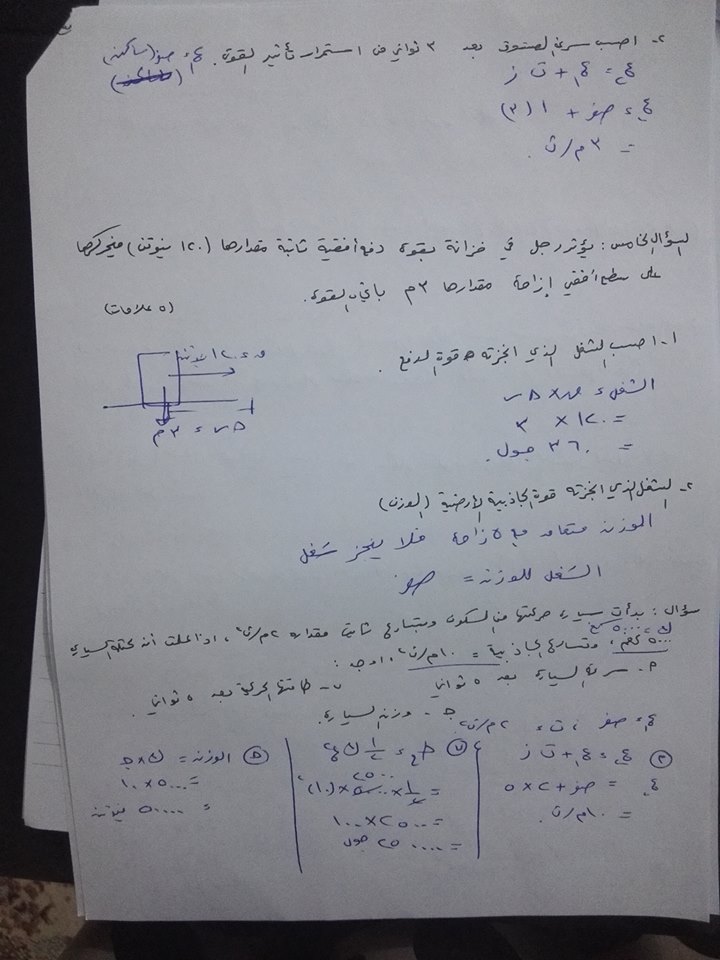 ٢- احسب سرعة الصندوق بعد ٣ ثواني من استمرار تأثير القوة. ع١ = صفر (ساكن)
ع٢ = ع١ + ت ز
ع٢ = صفر + ١ (٣)
= ٣ م/ث.
السؤال الخامس: يؤثر رجل في خزانة بقوة دفع أفقية ثابتة مقدارها (١٢٠ نيوتن) فيحركها
على سطح أفقي إزاحة مقدارها ٣م باتجاه القوة.
(٥ علامات)
١- احسب الشغل الذي أنجزته قوة الدفع.
الشغل = ق × Δس
= ١٢٠ × ٣
= ٣٦٠ جول.
ق = ١٢٠ نيوتن
Δس = ٣م
٢- الشغل الذي أنجزته قوة الجاذبية الأرضية (الوزن)
الوزن متعامد مع الإزاحة فلا ينجز شغل
الشغل للوزن = صفر
سؤال: بدأت سيارة حركتها من السكون وبتسارع ثابت مقداره ٢م/ث٢، اذا علمت أن كتلة السيارة
ك = ٥٠٠٠ كغ
٥٠٠٠ كغم، وتسارع الجاذبية = ١٠م/ث٢، اوجد:
أ- سرعة السيارة بعد ٥ ثواني ب- طاقتها الحركية بعد ٥ ثواني.
ج- وزن السيارة.
ع١ = صفر، ت = ٢م/ث٢
ع٢ = ع١ + ت ز
ع٢ = صفر + ٢ × ٥
= ١٠ م/ث.
ط ح = ١/٢ ك ع٢
٢٥٠٠
= ١/٢ × ٥٠٠٠ × (١٠)٢
= ٢٥٠٠ × ١٠٠
= ٢٥٠٠٠٠ جول
الوزن = ك × ج
= ٥٠٠٠ × ١٠
= ٥٠٠٠٠ نيوتن